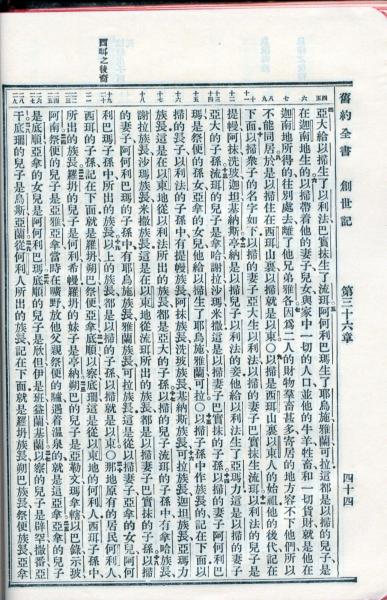 舊約全書 創世記 第三十六章 四十四
亞大給以掃生了以利法巴實抹生了流珥阿何利巴瑪生了耶烏施雅蘭可拉這都是以掃的兒子是
在迦南地生的以掃帶着他的妻子兒女與家中一切的人口並他的牛羊牲畜和一切貨財就是他在
迦南地所得的往別處去離了他兄弟雅各因爲二人的財物羣畜甚多寄居的地方容不下他們所以
不能同居於是以掃住在西珥山裏以掃就是以東○以掃是西珥山裏以東人的始祖他的後代記在
下面以掃衆子的名字如下以掃的妻子亞大生以利法以掃的妻子巴實抹生流珥以利法的兒子是
提幔阿抹洗玻迦坦基納斯亭納是以掃兒子以利法的妾他給以利法生了亞瑪力這是以掃的妻子
亞大的子孫流珥的兒子是拿哈謝拉沙瑪米撒這是以掃妻子巴實抹的子孫以掃的妻子阿何利巴
瑪是祭便的孫女亞拿的女兒他給以掃生了耶烏施雅蘭可拉○以掃子孫中作族長的記在下面以
掃的長子以利法的子孫中有提幔族長阿抹族長洗玻族長基納斯族長可拉族長迦坦族長亞瑪力
族長這是在以東地從以利法所出的族長都是亞大的子孫以掃的兒子流珥的子孫中有拿哈族長
謝拉族長沙瑪族長米撒族長這是在以東地從流珥所出的族長都是以掃妻子巴實抹的子孫以掃
的妻子阿何利巴瑪的子孫中有耶烏施族長雅蘭族長可拉族長這是從以掃妻子亞拿的女兒阿何
利巴瑪子孫中所出的族長以上的族長都是以掃的子孫以掃就是以東○那地原有的居民何利人
西珥之後裔
西珥的子孫記在下面就是羅坍朔巴祭便亞拿底順以察底珊這是從以東地的何利人西珥子孫中
所出的族長羅坍的兒子是何利希幔羅坍的妹子是亭納朔巴的兒子是亞勒文瑪拿轄以巴錄示玻
阿南祭便的兒子是亞雅亞拿當時在曠野放他父親祭便的驢遇着溫泉的就是這亞拿亞拿的兒子
是底順亞拿的女兒是阿何利巴瑪底順的兒子是欣但伊是班益蘭基蘭以察的兒子是辟罕撒番亞
干底珊的兒子是烏斯亞蘭從何利人所出的族長記在下面就是羅坍族長朔巴族長祭便族長亞拿